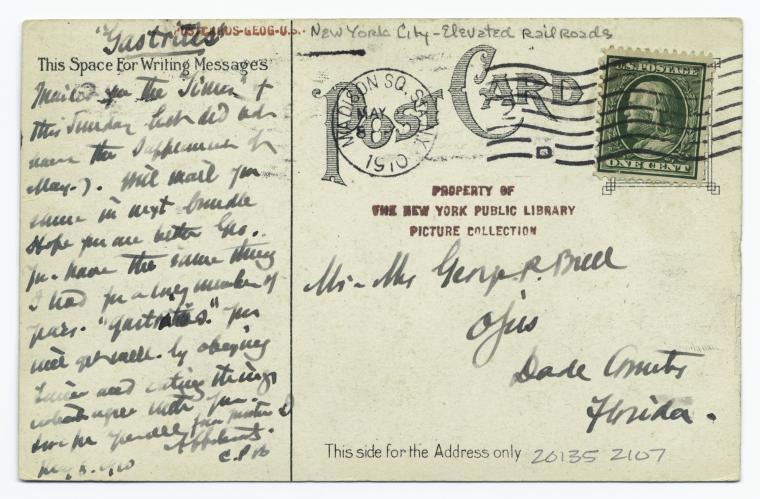 "Gastritis"
POSTCARDS-GEOG-U.S.-
New York City - Elevated Railroads
This Space For Writing Messages
Mailed you the Times &
this Sunday but did not
have the Supplement of
May-7. Will mail you
same in next bundle
Hope you are better Geo.
You have the same thing
I had for a long number of
years. "gastritis." you
will get well by obeying
eating things
which agree with you.
May 8. 1910
POST CARD
MADISON SQ. STA. N.Y.
MAY
8
1910
2
U.S. POSTAGE
ONE CENT
PROPERTY OF
THE NEW YORK PUBLIC LIBRARY
PICTURE COLLECTION
Mr - Mrs George. R. Bell
Ojus
Dade County
Florida.
This side for the Address only
20135 2107